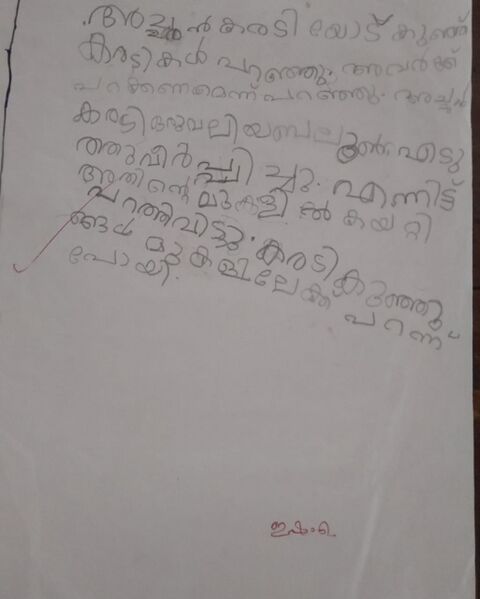 അച്ഛൻ കരടിയോട് കുഞ്ഞ്
കരടികൾ പറഞ്ഞു. അവർക്ക്
പറക്കണമെന്ന് പറഞ്ഞു. അച്ഛൻ
കരടി ഒരു വലിയ ബലൂൺ എടു
ത്തു വീർപ്പിച്ചു. എന്നിട്ട്
അതിന്റെ മുകളിൽ കയറ്റി
പറത്തിവിട്ടു. കരടികുഞ്ഞു
ങ്ങൾ മുകളിലേക്ക് പറന്ന്
പോയി.